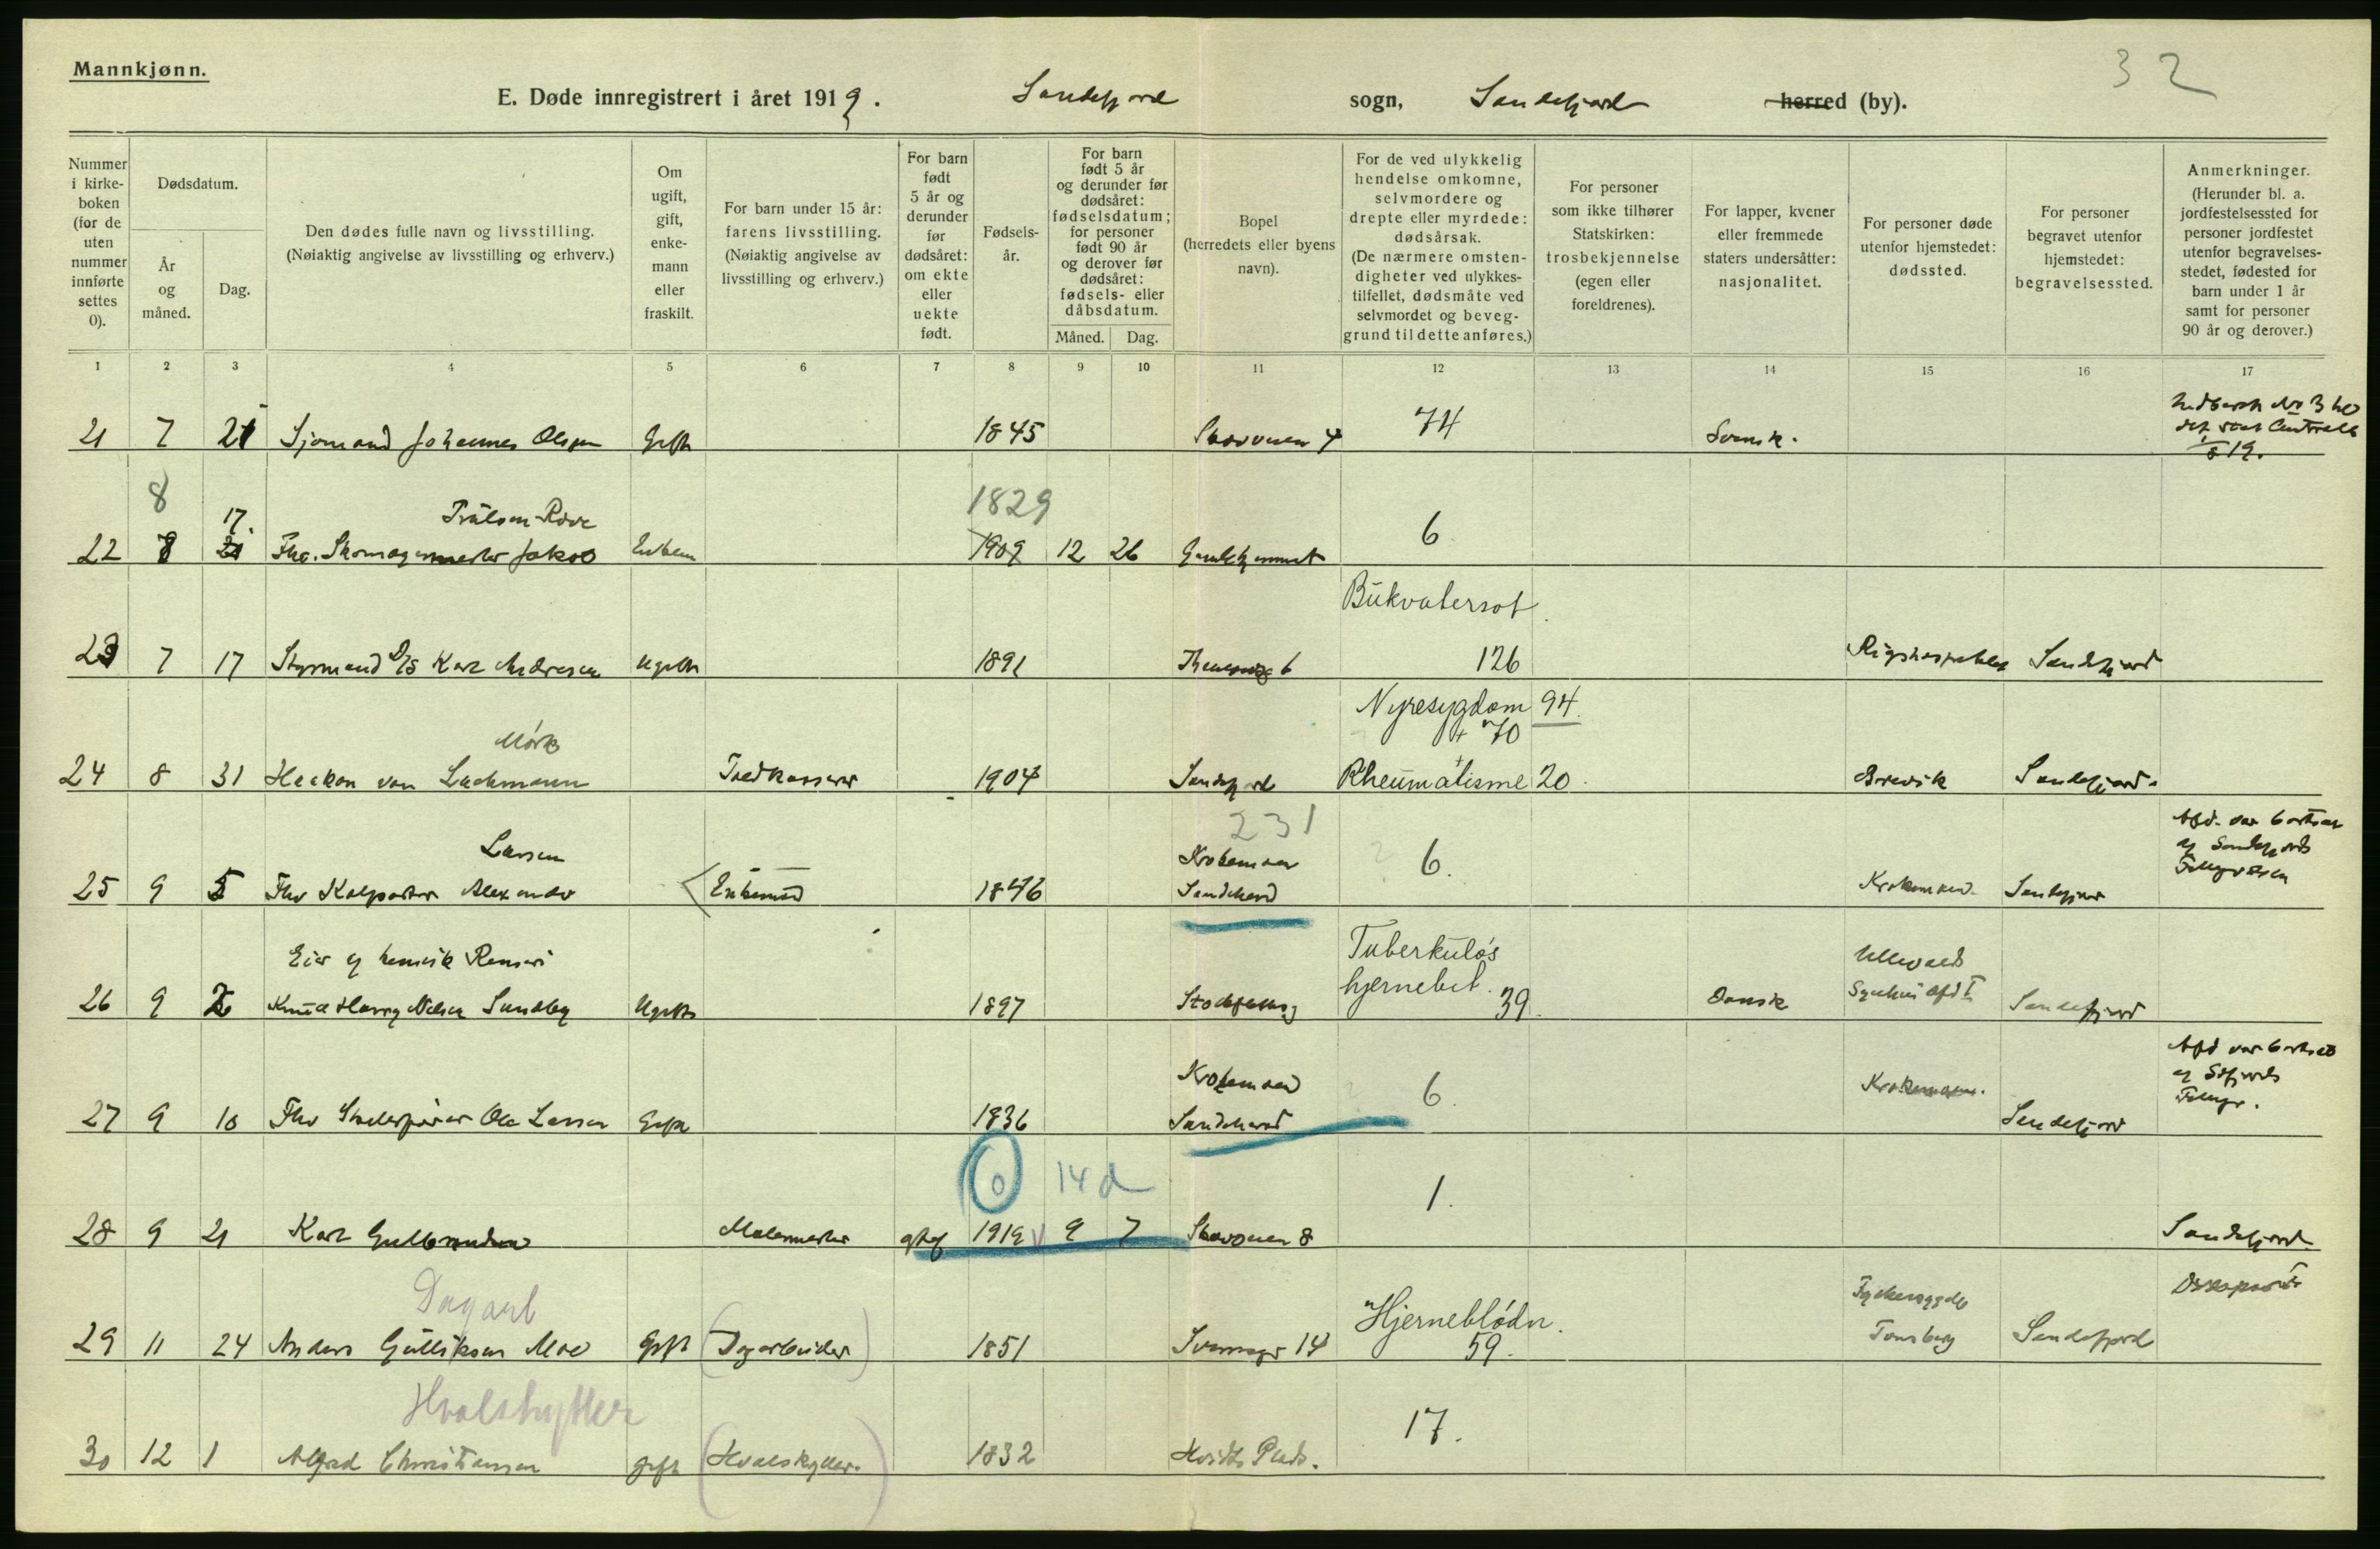 Mannkjønn.
32
E. Døde innregistrert i året 1919. Sandefjord sogn, Sandefjord herred (by).
Nummer i kirke-boken (for de uten nummer innførte settes 0).
Dødsdatum.
År og måned.
Dag.
Den dødes fulle navn og livsstilling.
(Nøiaktig angivelse av livsstilling og erhverv.)
Om ugift, gift, enke-mann eller fraskilt.
For barn under 15 år: farens livsstilling.
(Nøiaktig angivelse av livsstilling og erhverv.)
For barn født 5 år og derunder før dødsåret: om ekte eller uekte født.
Fødsels-år.
For barn født 5 år og derunder før dødsåret: fødselsdatum; for personer født 90 år og derover før dødsåret: fødsels- eller dåbsdatum.
Måned.
Dag.
Bopel
(herredets eller byens navn).
For de ved ulykkelig hendelse omkomne, selvmordere og drepte eller myrdede: dødsårsak.
(De nærmere omsten-digheter ved ulykkes-tilfellet, dødsmåte ved selvmordet og beveg-grund til dette anføres.)
For personer som ikke tilhører Statskirken: trosbekjennelse
(egen eller foreldrenes).
For lapper, kvener eller fremmede staters undersåtter: nasjonalitet.
For personer døde utenfor hjemstedet: dødssted.
For personer begravet utenfor hjemstedet: begravelsessted.
Anmerkninger.
(Herunder bl. a. jordfestelsessted for personer jordfestet utenfor begravelses-stedet, fødested for barn under 1 år samt for personer 90 år og derover.)
1 2 3 4 5 6 7 8 9 10 11 12 13 14 15 16 17
21 7 21 Sjømand Johannes Olsen Gift 1845 4 74 Svensk. No 3
19.
8 17. 1829
22 8 Fhv. Skomagermester Jakob 1909 12 26 Gamlehjemmet 6
Bukvatersot
23 7 17 Styrmand D/S Karl Andresen Ugift 1891 6 126 Rigshospitalet Sandefjord
Nyresygdom 94.
Mørk + 70
24 8 31 Haakon von Lachmann 1904 Sandefjord Rheumatisme 20. Brevik Sandefjord.
231
Larsen Krokemoen Afd. var bortsat
af Sandefjords
25 9 5 Fhv Kolportør Alexander Enkemand 1846 Sandeherred 6. Krokemoen. Sandefjord Fattigvæsen
Eier af kemisk Renseri Tuberkuløs Ullevaals
26 9 Knud Harry Nielsen Sundby Ugift 1897 hjernebet. 39. Dansk Sandefjord
Krokemoen Afd var bortsat
af
27 9 10 Fhv Ole Larsen Gift 1836 Sandeherred 6. Krokemoen. Sandefjord Fattigv.
0 14 d
28 9 21 Karl Gulbrandsen Malermester 1919 9 7 8 1. Sandefjord
Dagarb Hjerneblødn.
29 11 24 Anders Gulliksen Moe Gift (Dagarbeider) 1851 14 59. Tønsberg Sandefjord
Hvalskytter
30 12 1 Alfred Christiansen gift (Hvalskytter.) 1832 Hvidts Plads. 17.